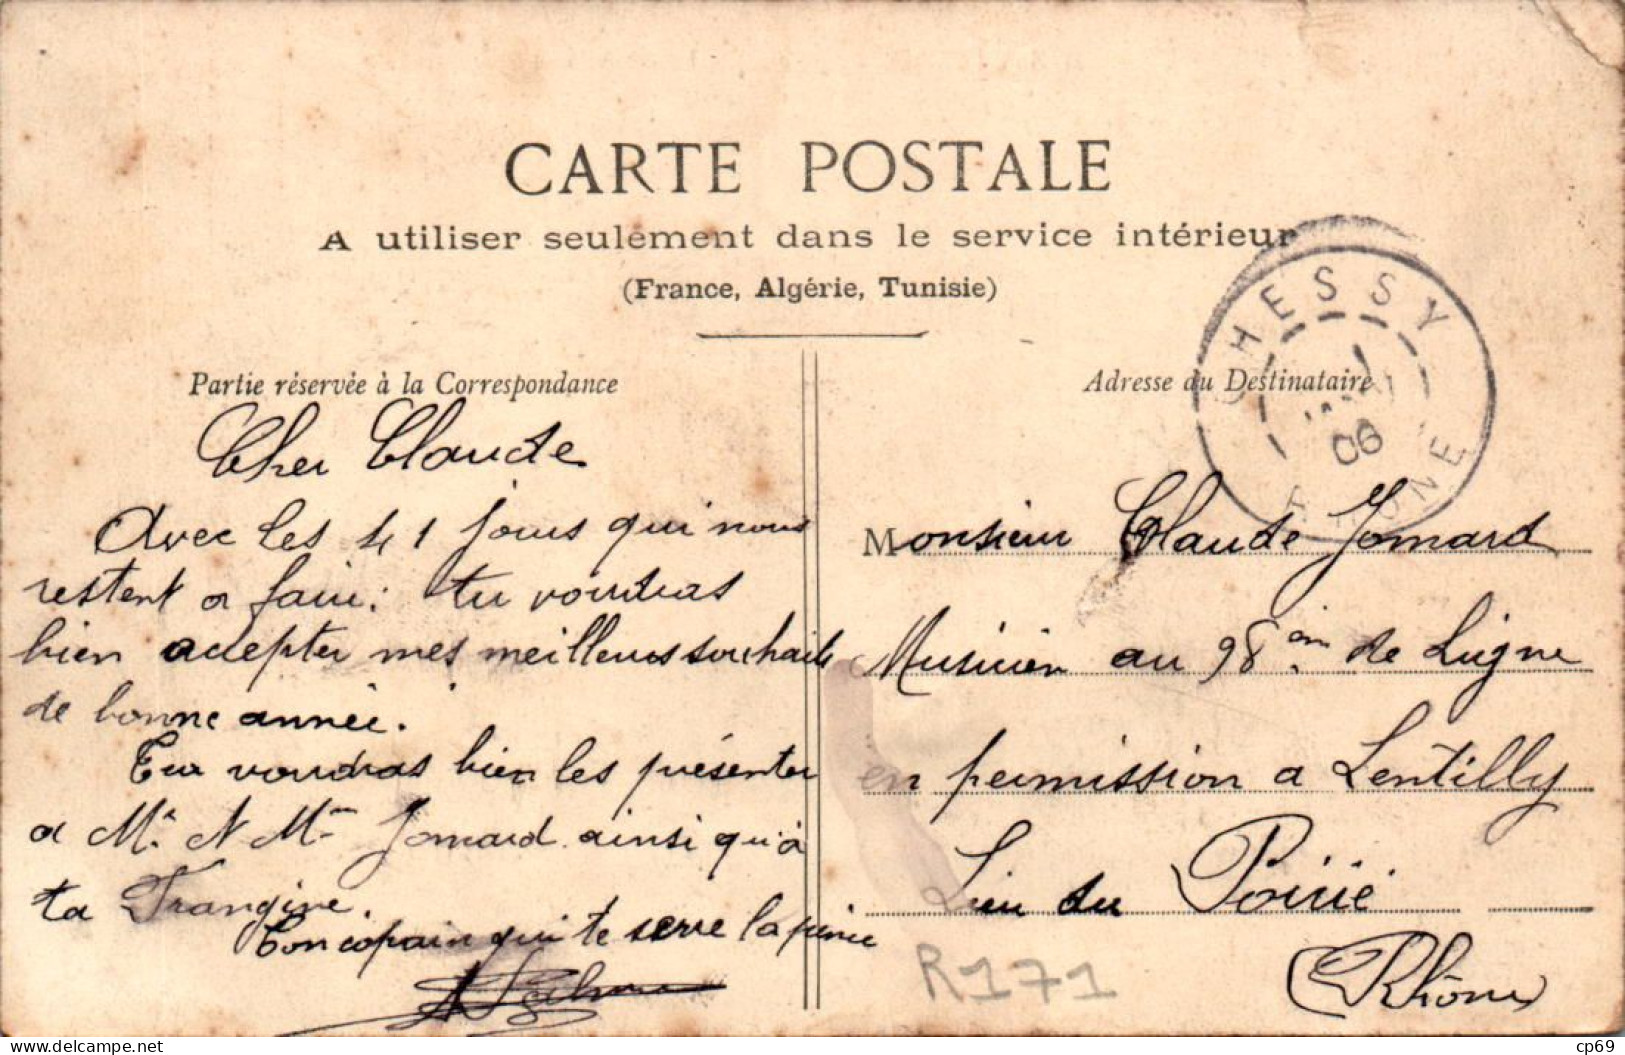 CARTE POSTALE
A utiliser seulement dans le service intérieur
(France, Algérie, Tunisie)
Partie réservée à la Correspondance
Cher Claude
Avec les 41 jours qui nous
restent a faire: tu voudras
bien accepter mes meilleurs souhaits
de bonne année.
Tu voudras bien les présenter
a Mr. & Mme Jomard ainsi qu'à
ta Frangine.
Ton copain qui te serre la pince
Adresse du Destinataire
CHESSY
06
RHONE
Monsieur Claude Jomard
Musicien au 98ème de Ligne
en permission a Lentilly
Lieu du Poirié
(Rhône)
R171
delcampe.net
cp69